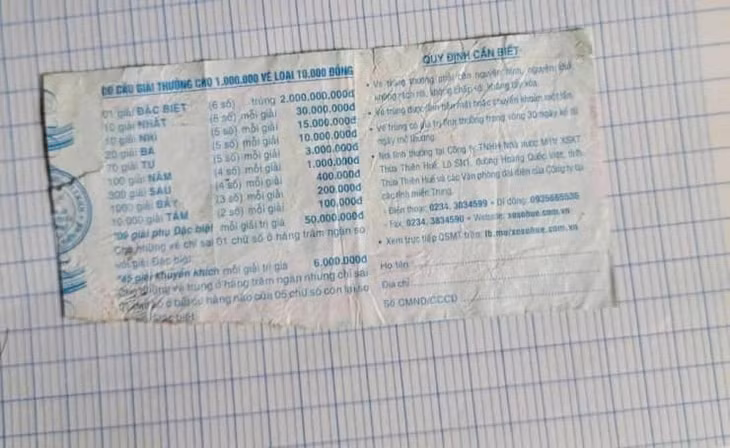 CƠ CẤU GIẢI THƯỞNG CHO 1.000.000 VÉ LOẠI 10.000 ĐỒNG
01 giải ĐẶC BIỆT (6 số) trúng 2.000.000.000đ
10 giải NHẤT (5 số) mỗi giải 30.000.000đ
10 giải NHÌ (5 số) mỗi giải 15.000.000đ
20 giải BA (5 số) mỗi giải 10.000.000đ
70 giải TƯ (5 số) mỗi giải 3.000.000đ
100 giải NĂM (4 số) mỗi giải 1.000.000đ
300 giải SÁU (4 số) mỗi giải 400.000đ
1000 giải BẢY (3 số) mỗi giải 200.000đ
10.000 giải TÁM (2 số) mỗi giải 100.000đ
giải phụ Đặc biệt mỗi giải trị giá 50.000.000đ
những vé chỉ sai 01 chữ số ở hàng trăm ngàn so
với giải Đặc biệt
*45 giải Khuyến khích mỗi giải trị giá 6.000.000đ
những vé trúng ở hàng trăm ngàn nhưng chỉ sai
số ở bất cứ hàng nào của 05 chữ số còn lại so
biệt
QUY ĐỊNH CẦN BIẾT
• Vé trúng thưởng phải còn nguyên hình, nguyên khổ,
không rách rời, không chắp vá, không tẩy xóa.
• Vé trúng được lãnh tiền mặt hoặc chuyển khoản một lần.
• Vé trúng có giá trị lĩnh thưởng trong vòng 30 ngày kể từ
ngày mở thưởng.
• Nơi lĩnh thưởng tại Công ty TNHH Nhà nước MTV XSKT
Thừa Thiên Huế, Lô đường Hoàng Quốc Việt, tỉnh
Thừa Thiên Huế và các Văn phòng đại diện của Công ty tại
các tỉnh miền Trung.
- Điện thoại: 0234. 3834599 • Di động:
- Fax: 0234. 3834590 • Website: xosohue.com.vn
• Xem trực tiếp QSMT trên: fb.me/xosohue.com.vn
Họ tên
Địa chỉ
Số CMND/CCCD